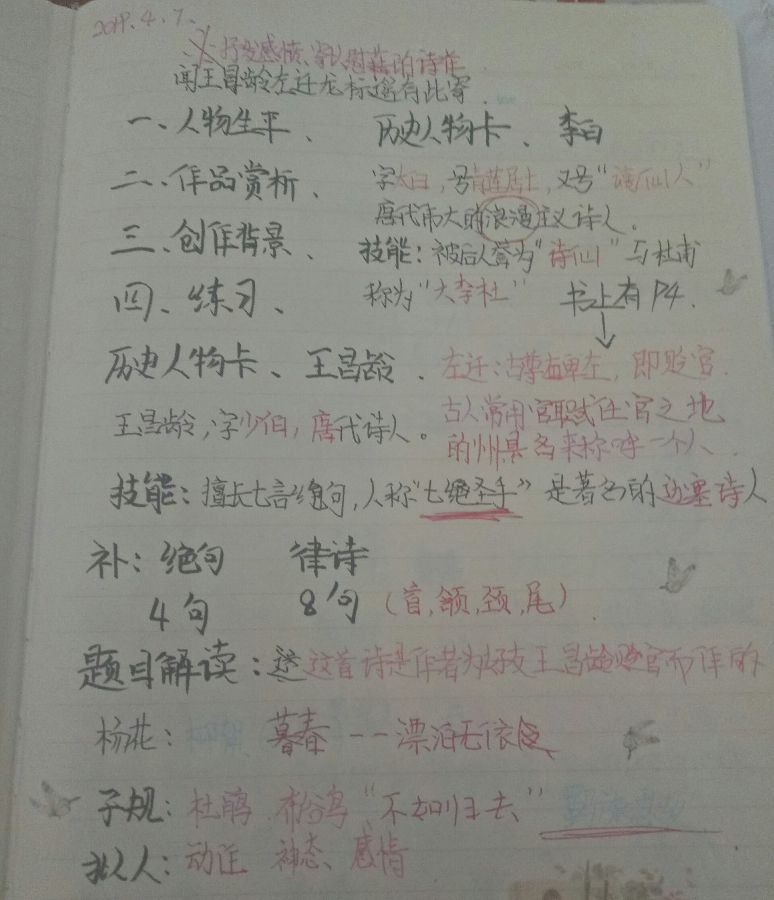 2019.4.7.
抒发感情、寄以慰藉的诗作
闻王昌龄左迁龙标遥有此寄.
一、人物生平、 历史人物卡、李白
二、作品赏析、 字太白，号青莲居士，又号“谪仙人”
唐代伟大的浪漫主义诗人。
三、创作背景、 技能：被后人誉为“诗仙”与杜甫
四、练习、 称为“大李杜” 书上有P4.
历史人物卡、王昌龄. 左迁：古尊右卑左，即贬官.
王昌龄，字少伯，唐代诗人。 古人常用官职或任官之地
的州县名来称呼一个人.
技能：擅长七言绝句，人称“七绝圣手”是著名的边塞诗人
补：绝句 律诗
4句 8句（首，颔，颈，尾）
题目解读：这首诗是作者为好友王昌龄贬官而作的
杨花： 暮春--漂泊无依
子规：杜鹃 布谷鸟“不如归去”
拟人：动作 神态、感情